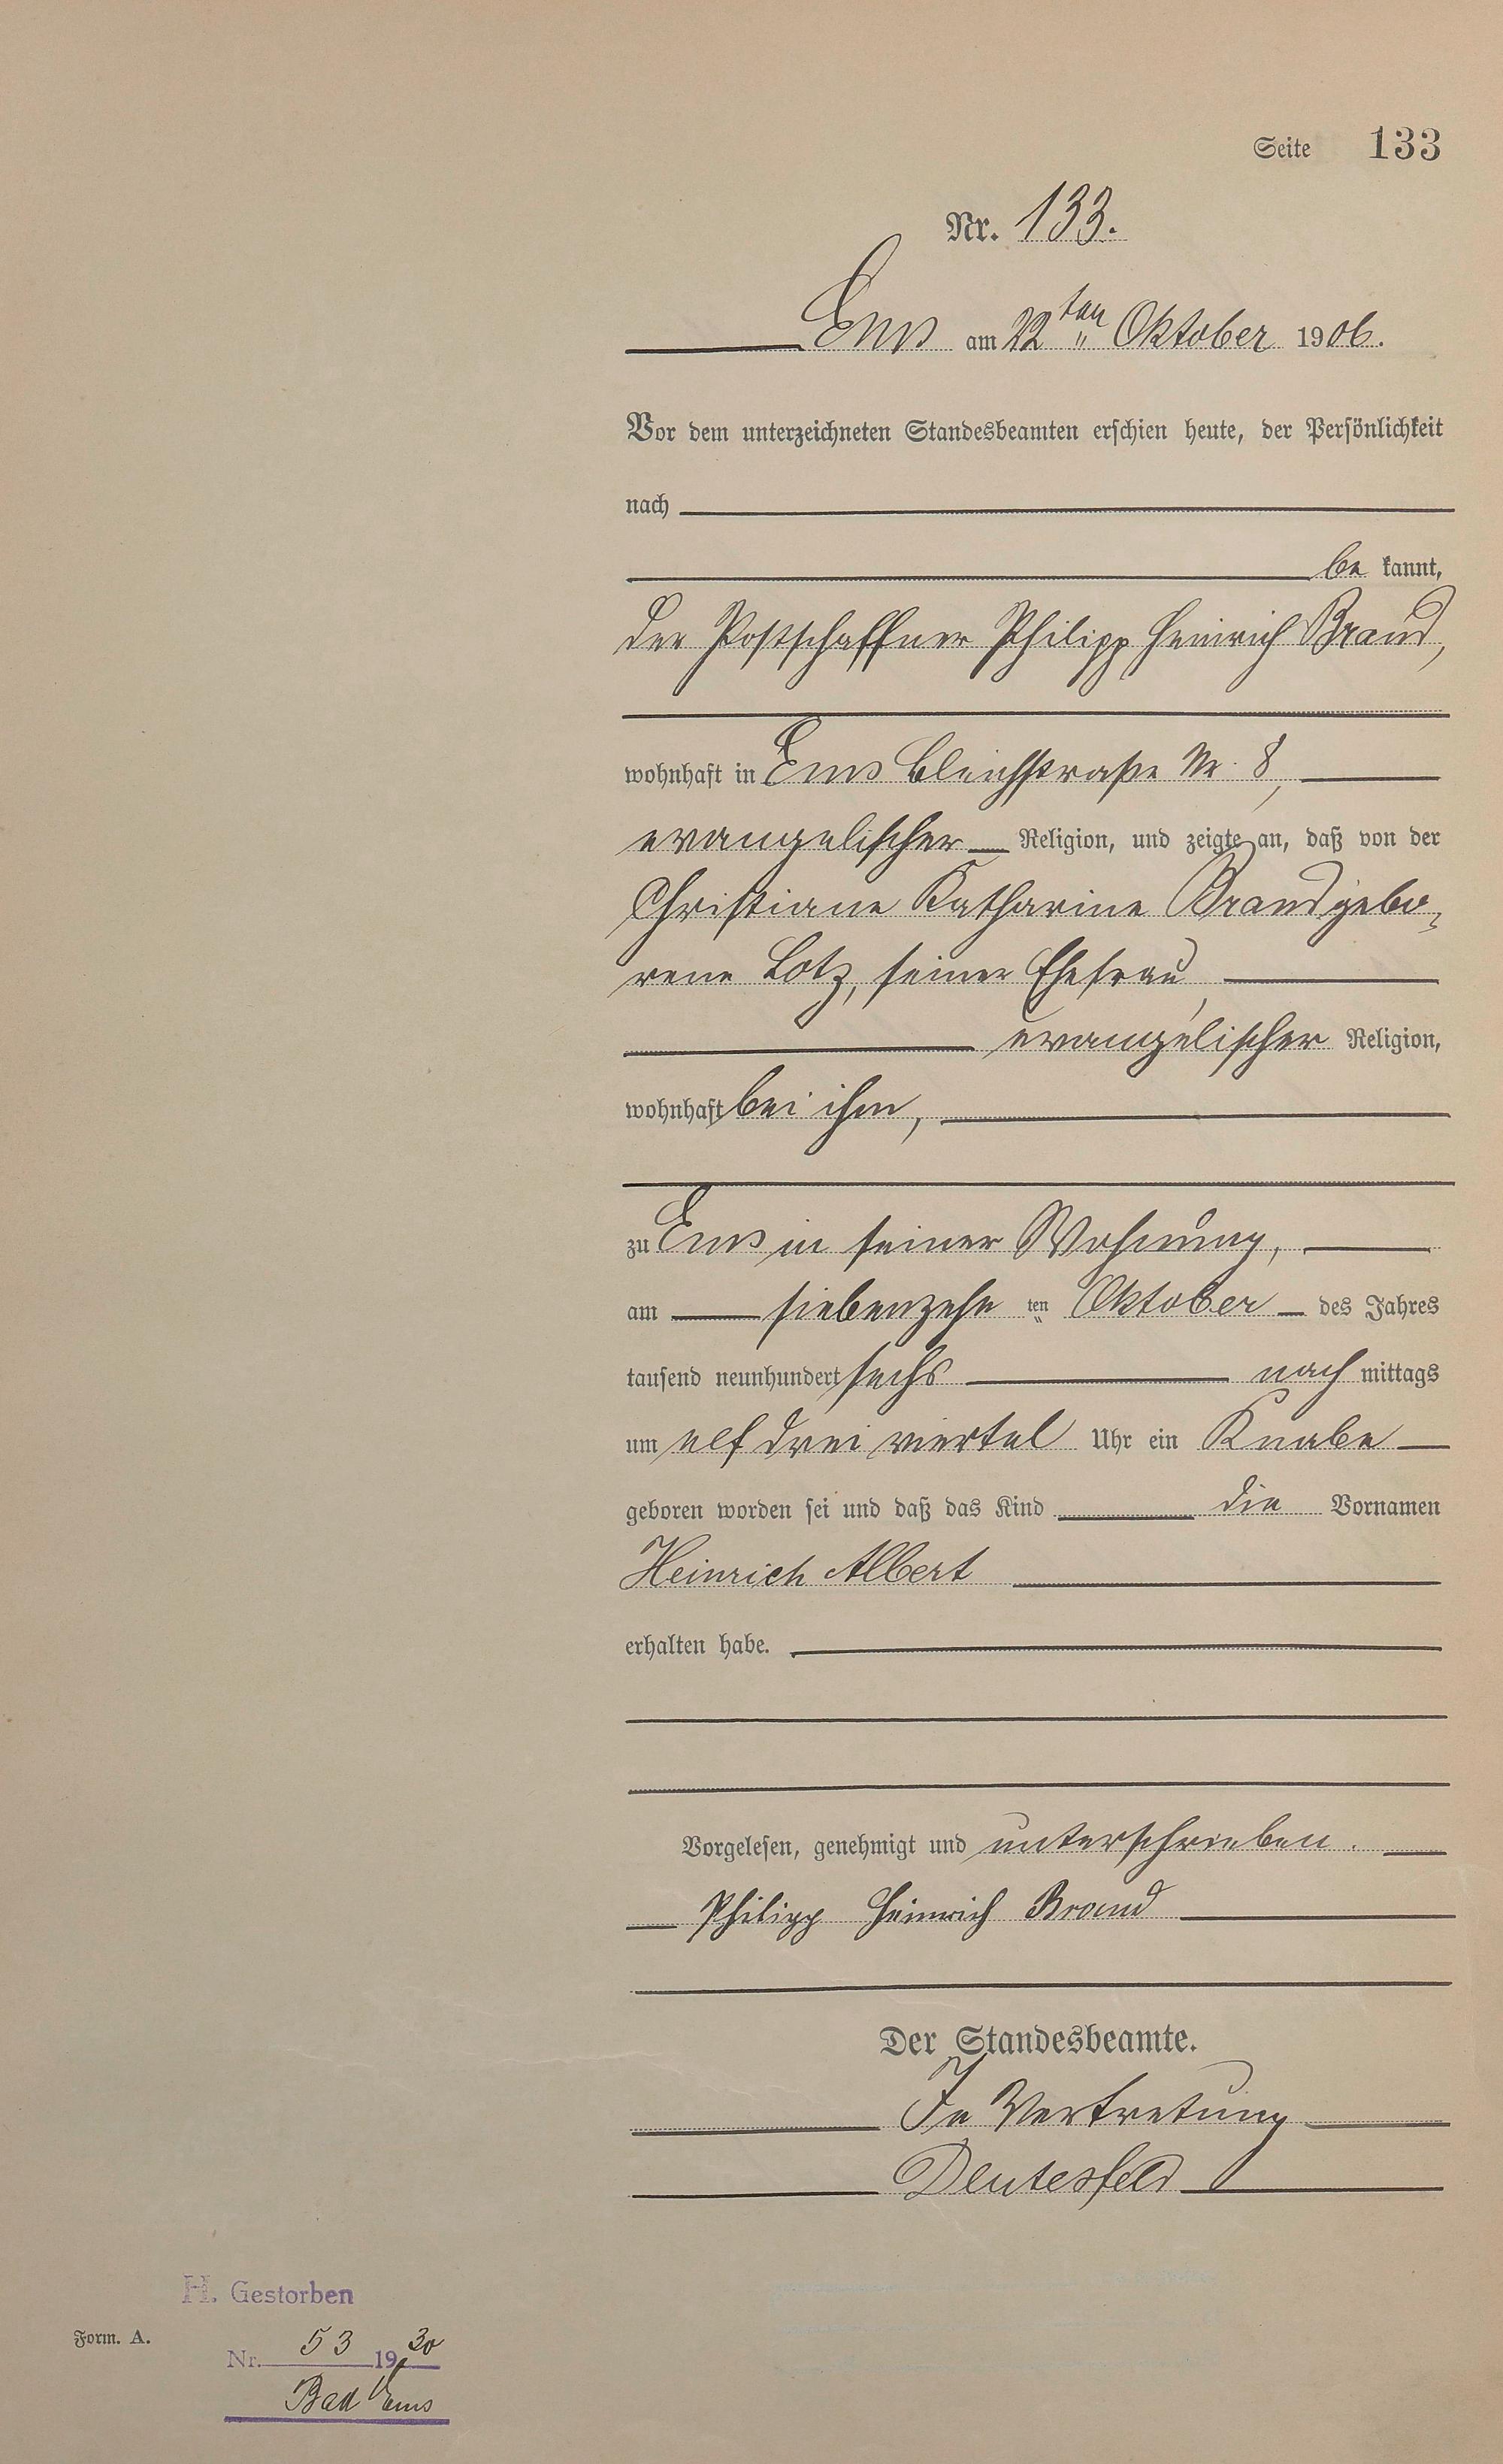 Seite 133
Nr. 133.
Ems am 22ten Oktober 1906.
Vor dem unterzeichneten Standesbeamten erschien heute, der Persönlichkeit
nach
be kannt,
der Postschaffner Philipp Heinrich Brand,
wohnhaft in Ems Bleichstraße Nr. 8,
evangelischer Religion, und zeigte an, daß von der
Christiane Katharine Brand gebo-
rene Lotz, seiner Ehefrau,
evangelischer Religion,
wohnhaft bei ihm,
zu Ems in seiner Wohnung,
am siebenzehn ten Oktober des Jahres
tausend neunhundert sechs nach mittags
um elf drei viertel Uhr ein Knabe
geboren worden sei und daß das Kind die Vornamen
Heinrich Albert
erhalten habe.
Vorgelesen, genehmigt und unterschrieben.
Philipp Heinrich Brand
Der Standesbeamte.
In Vertretung
Deutesfeld
H. Gestorben
Form. A.
Nr. 53 1930
Bad Ems